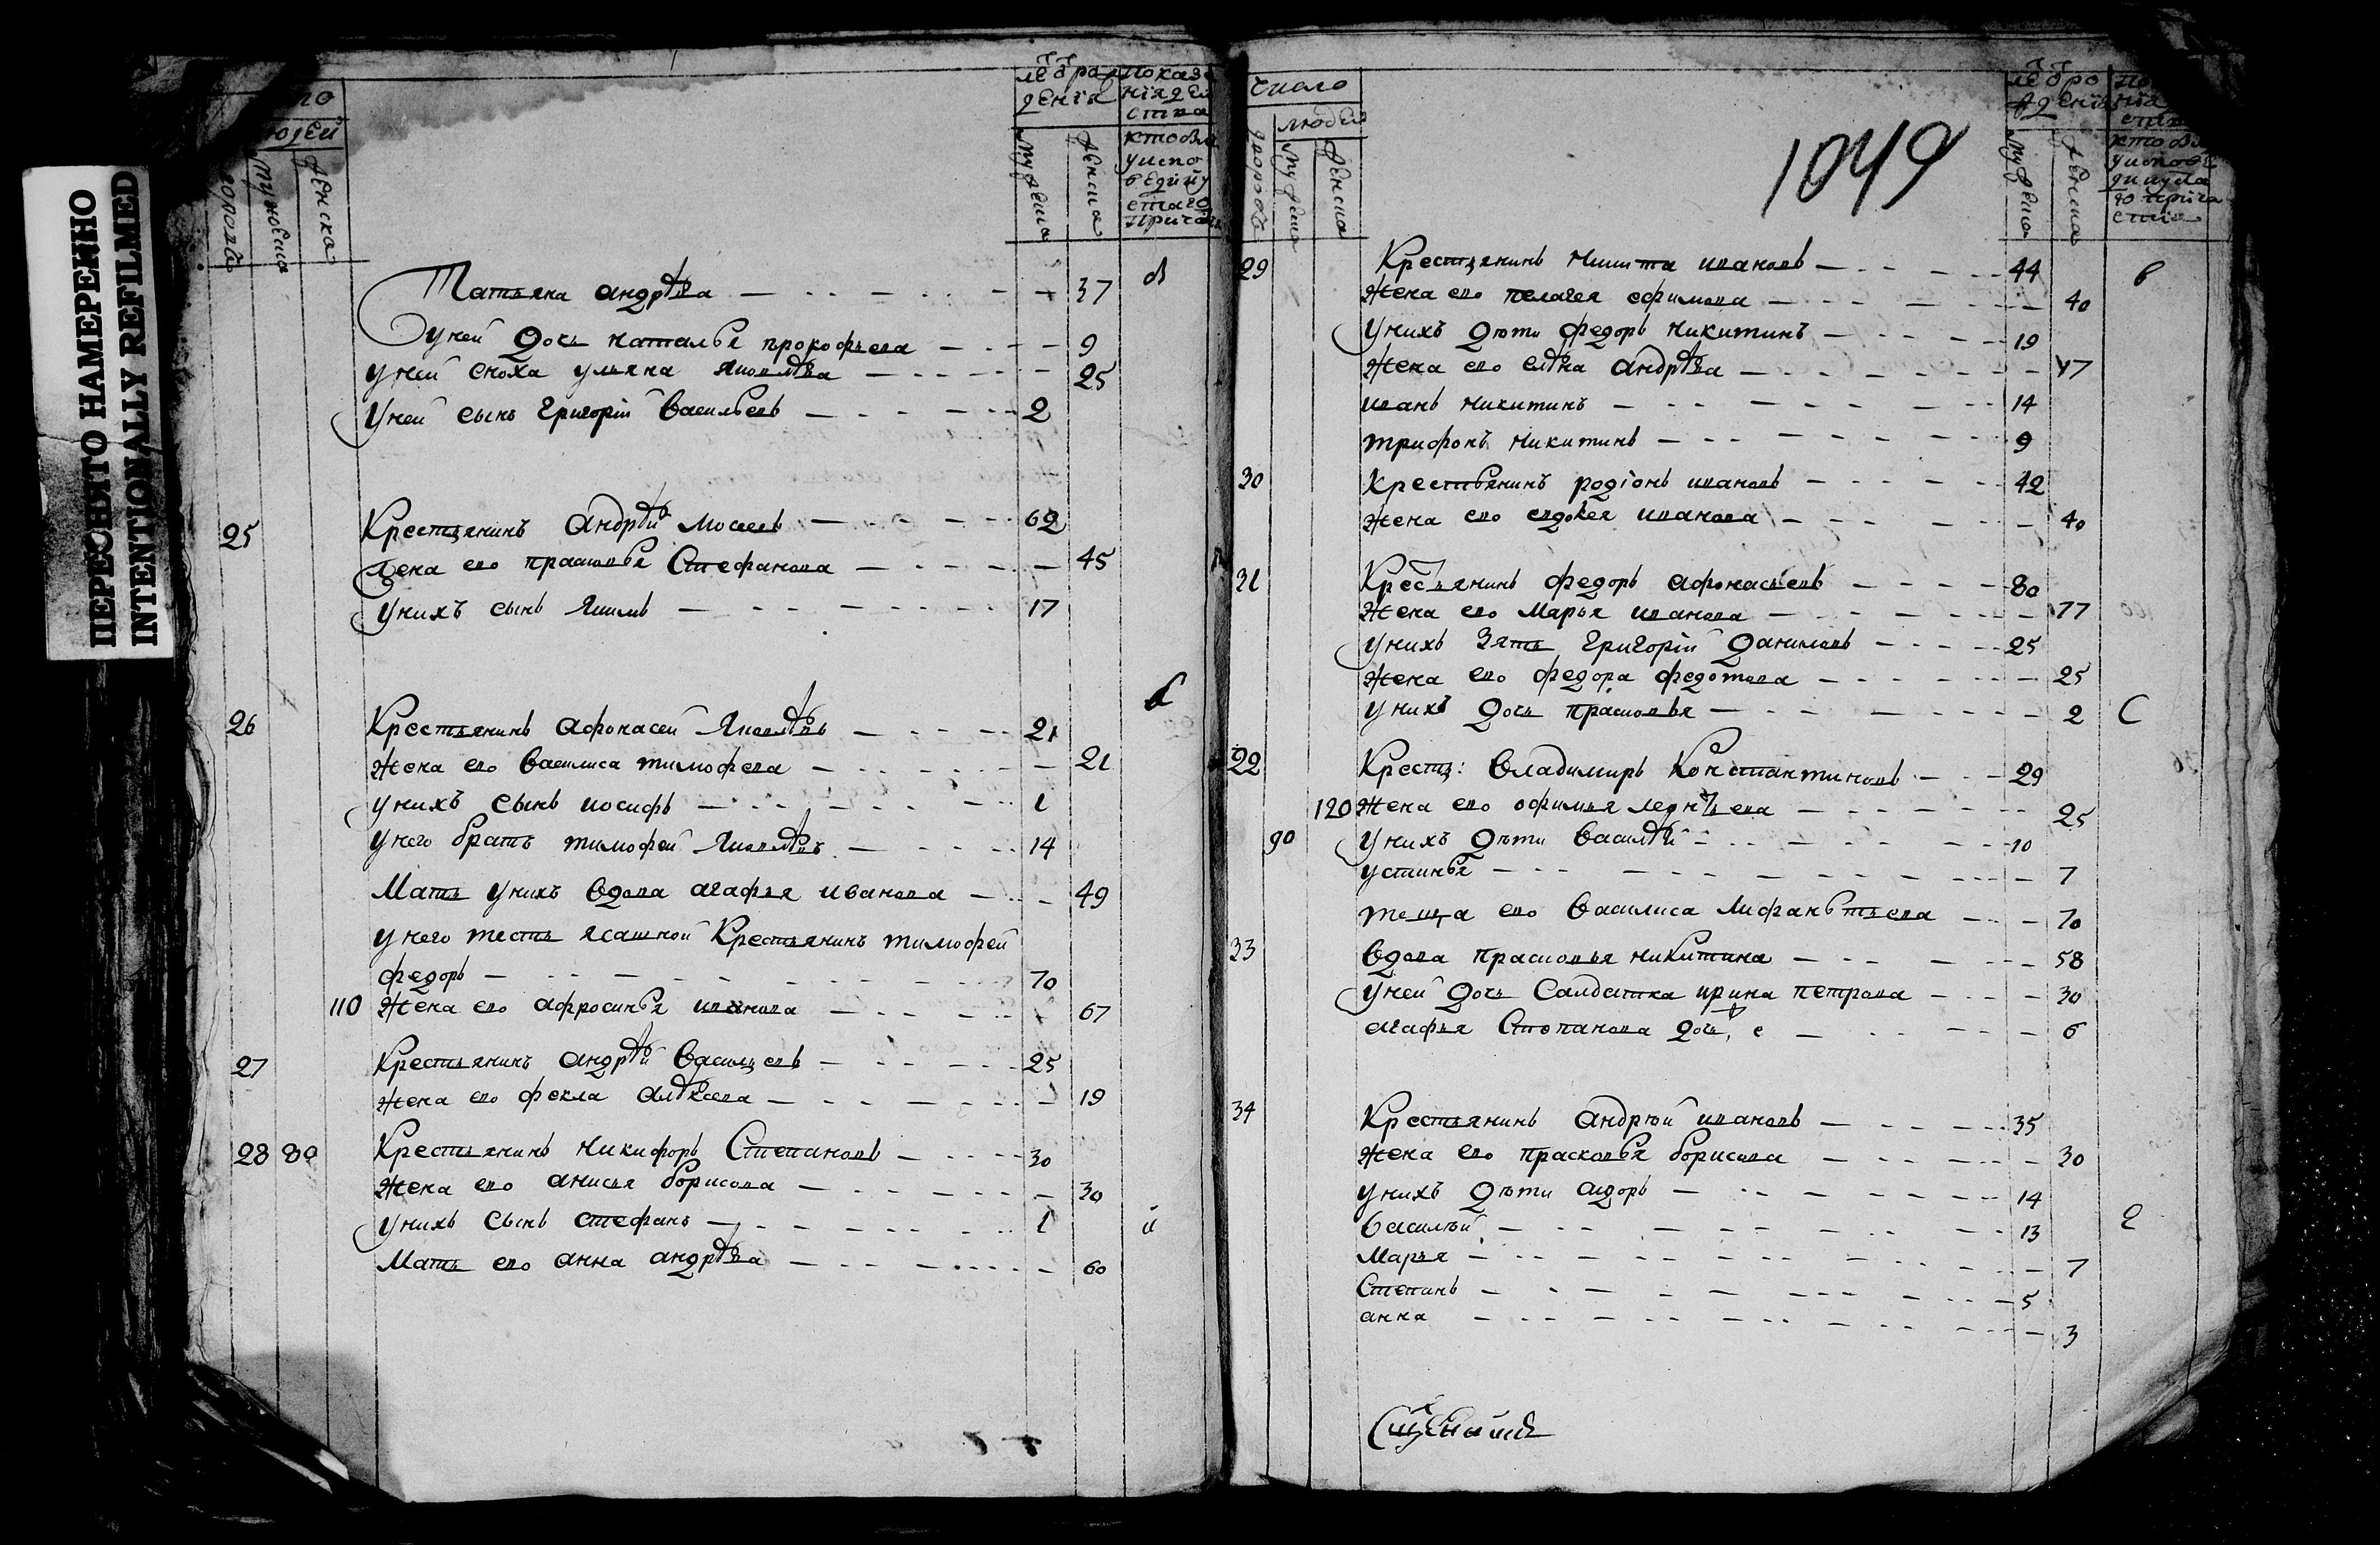 ПЕРЕСНЯТО НАМЕРЕННО
INTENTIONALLY REFILMED
людей
мужеска
женска
лѣтъ рож
денїѧ
мужеска
женска
показа
нїя дей
ства
кто былъ
у испо
веди и у
стаго
причас
Татьяна андрѣева — 37
у ней дочь наталья прокофьева — 9
у ней сноха ульяна яковлѣва — 25
у ней сынъ григорїй васильевъ — 2
25 Крестьянинъ андрѣй мосеевъ — 62
жена его прасковья Стефанова — 45
у нихъ сынъ якимъ — 17
26 Крестьянинъ афонасей яковлѣвъ — 21
жена его василиса тимофева — 21
у нихъ сынъ иосифъ — 1
у него братъ тимофей яковлѣвъ — 14
Мать у нихъ вдова агафья иванова — 49
у него тесть ясашной Крестьянинъ тимофей
федоръ — 70
110 жена его афросинья иванова — 67
27 Крестьянинъ андрѣй васильевъ — 25
жена его фекла алѣксева — 19
28 80 Крестьянинъ никифоръ Степановъ — 30
жена его анисья борисова — 30
у нихъ сынъ стефанъ — 1
Мать его анна андрѣва — 60
1049
число
людей
дворовъ
мужеска
женска
лѣтъ ро
ждення
мужеска
женска
кто былъ
у исповѣ
ди и у ста
го прича
стїя
29 Крестьянинъ никита ивановъ — 44
жена его пелагея ефимова — 40
у нихъ дѣти федоръ никитинъ — 19
жена его елѣна андрѣва — 17
иванъ никитинъ — 14
трифонъ никитинъ — 9
30 Крестьянинъ родїонъ ивановъ — 42
жена его евдокея иванова — 40
31 Крестьянинъ федоръ афонасьевъ — 80
жена его марья иванова — 77
у нихъ зять григорїй даниловъ — 25
жена его федора федотова — 25
у нихъ дочь прасковья — 2
22 Крестья: владимиръ Константиновъ — 29
120 жена его офимья — 25
90 у нихъ дѣти василѣй — 10
устинья — 7
теща его василиса — 70
33 вдова прасковья никитина — 58
у ней дочь Салдатка ирина петрова — 30
агафья Степанова дочь е — 6
34 Крестьянинъ андрѣй ивановъ — 35
жена его прасковья борисова — 30
у нихъ дѣти сидоръ — 14
василѣй — 13
Марья — 7
Степанъ — 5
анна — 3